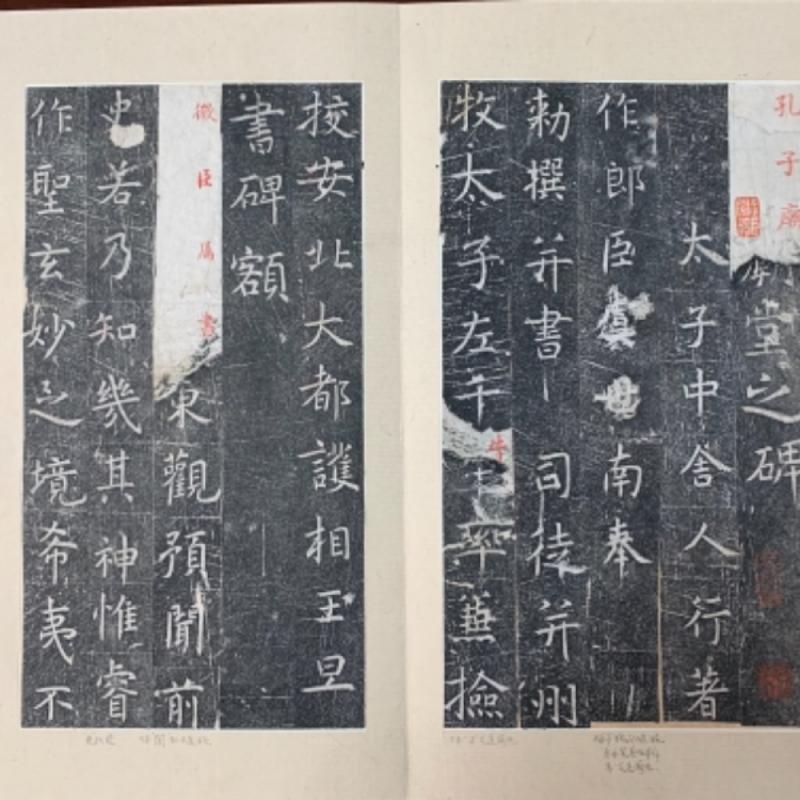 孔子廟堂之碑
太子中舍人行著
作郎臣虞世南奉
勑撰并書 司徒并州
牧太子左千牛率兼撿
挍安北大都護相王旦
書碑額
微臣属書東觀預聞前
史若乃知幾其神惟睿
作聖玄妙之境希夷不